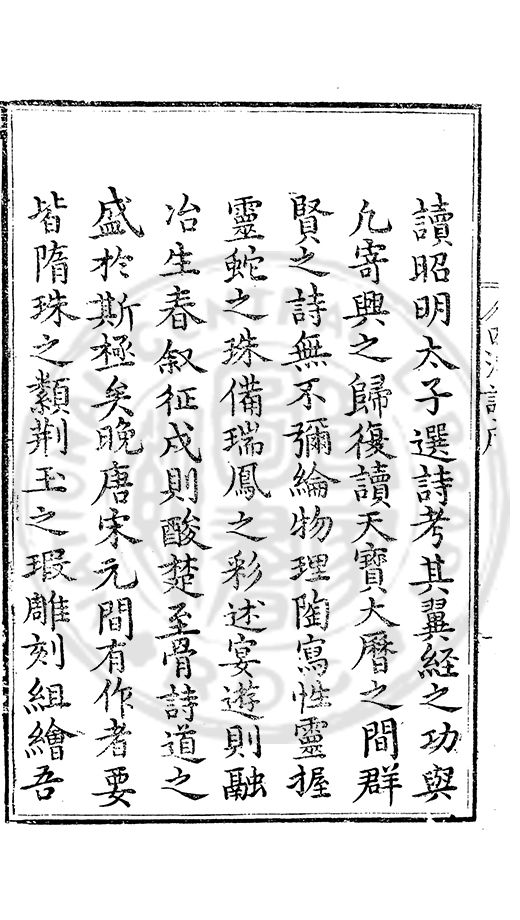 讀昭明太子選詩考其翼經之功與
凡寄興之歸復讀天寶大曆之間群
賢之詩無不彌綸物理陶寫性靈握
靈蛇之珠備瑞鳳之彩述宴遊則融
冶生春叙征戍則酸楚至骨詩道之
盛於斯極矣晚唐宋元間有作者要
皆隋珠之纇荆玉之瑕雕刻組繪吾